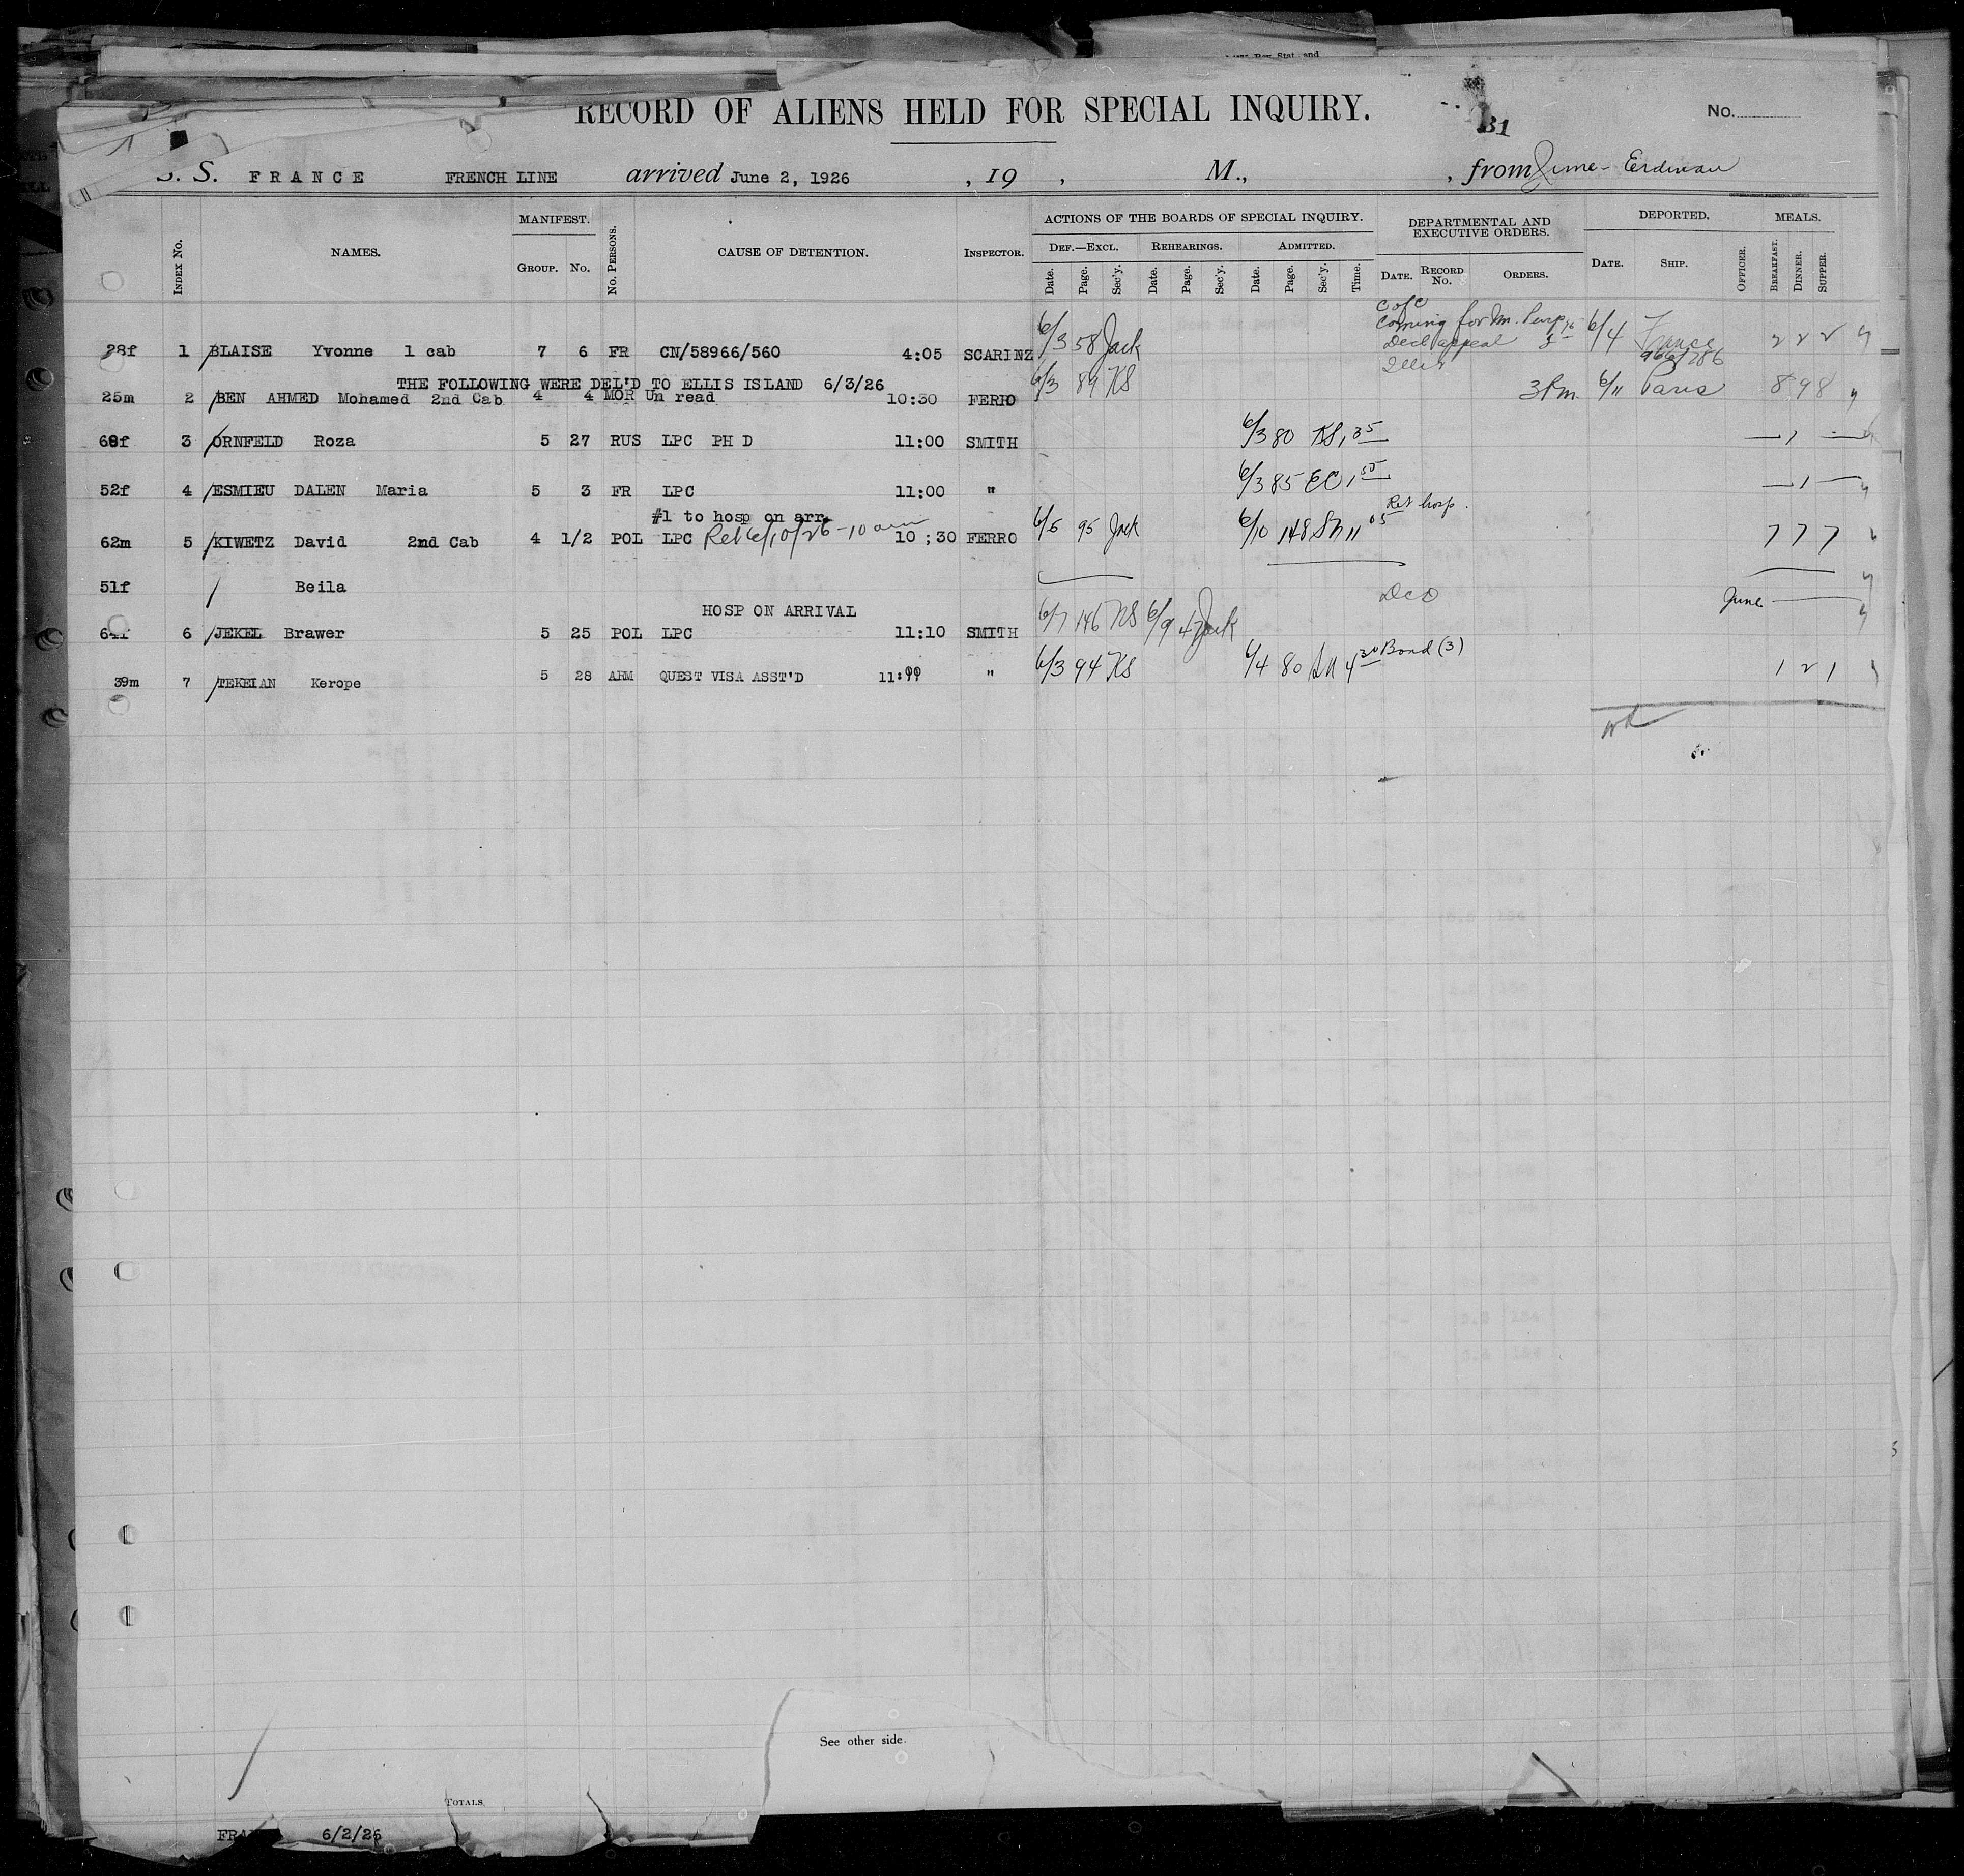 RECORD OF ALIENS HELD FOR SPECIAL INQUIRY.
31
No.
S. S. FRANCE FRENCH LINE arrived June 2, 1926 , 19 , M., , from
INDEX No. NAMES. MANIFEST. GROUP. No. No. PERSONS. CAUSE OF DETENTION. INSPECTOR. ACTIONS OF THE BOARDS OF SPECIAL INQUIRY. DEF.—EXCL. Date. Page. Sec'y. REHEARINGS. Date. Page. Sec'y. ADMITTED. Date. Page. Sec'y. Time. DEPARTMENTAL AND EXECUTIVE ORDERS. DATE. RECORD No. ORDERS. DEPORTED. DATE. SHIP. OFFICER. MEALS. BREAKFAST. DINNER. SUPPER.
28f 1 BLAISE Yvonne 1 cab 7 6 FR CN/58966/560 4:05 SCARINZ 6/3 58 Jack Decl appeal 6/4 France 2 2 2
THE FOLLOWING WERE DEL'D TO ELLIS ISLAND 6/3/26
25m 2 BEN AHMED Mohamed 2nd Cab 4 4 MOR Un read 10:30 FERRO 6/3 89 KS 3 Pm. 6/11 Paris 8 9 8
68f 3 ORNFELD Roza 5 27 RUS LPC PH D 11:00 SMITH 6/3 80 KS 1 35 — 1 —
52f 4 ESMIEU DALEN Maria 5 3 FR LPC 11:00 " 6/3 85 EC 1 — 1 —
#1 to hosp on arr. Ret hosp.
62m 5 KIWETZ David 2nd Cab 4 1/2 POL LPC Ret 6/10/26 - 10 am 10;30 FERRO 6/5 95 Jack 6/10 148 11 05 7 7 7
51f Beila
HOSP ON ARRIVAL
64f 6 JEKEL Brawer 5 25 POL LPC 11:10 SMITH 6/7 146 KS 6/9 47 Jack June
39m 7 TEKEIAN Kerope 5 28 ARM QUEST VISA ASST'D 11:00 " 6/3 94 KS 6/4 80 4 30 Bond (3) 1 2 1
See other side.
TOTALS.
6/2/26